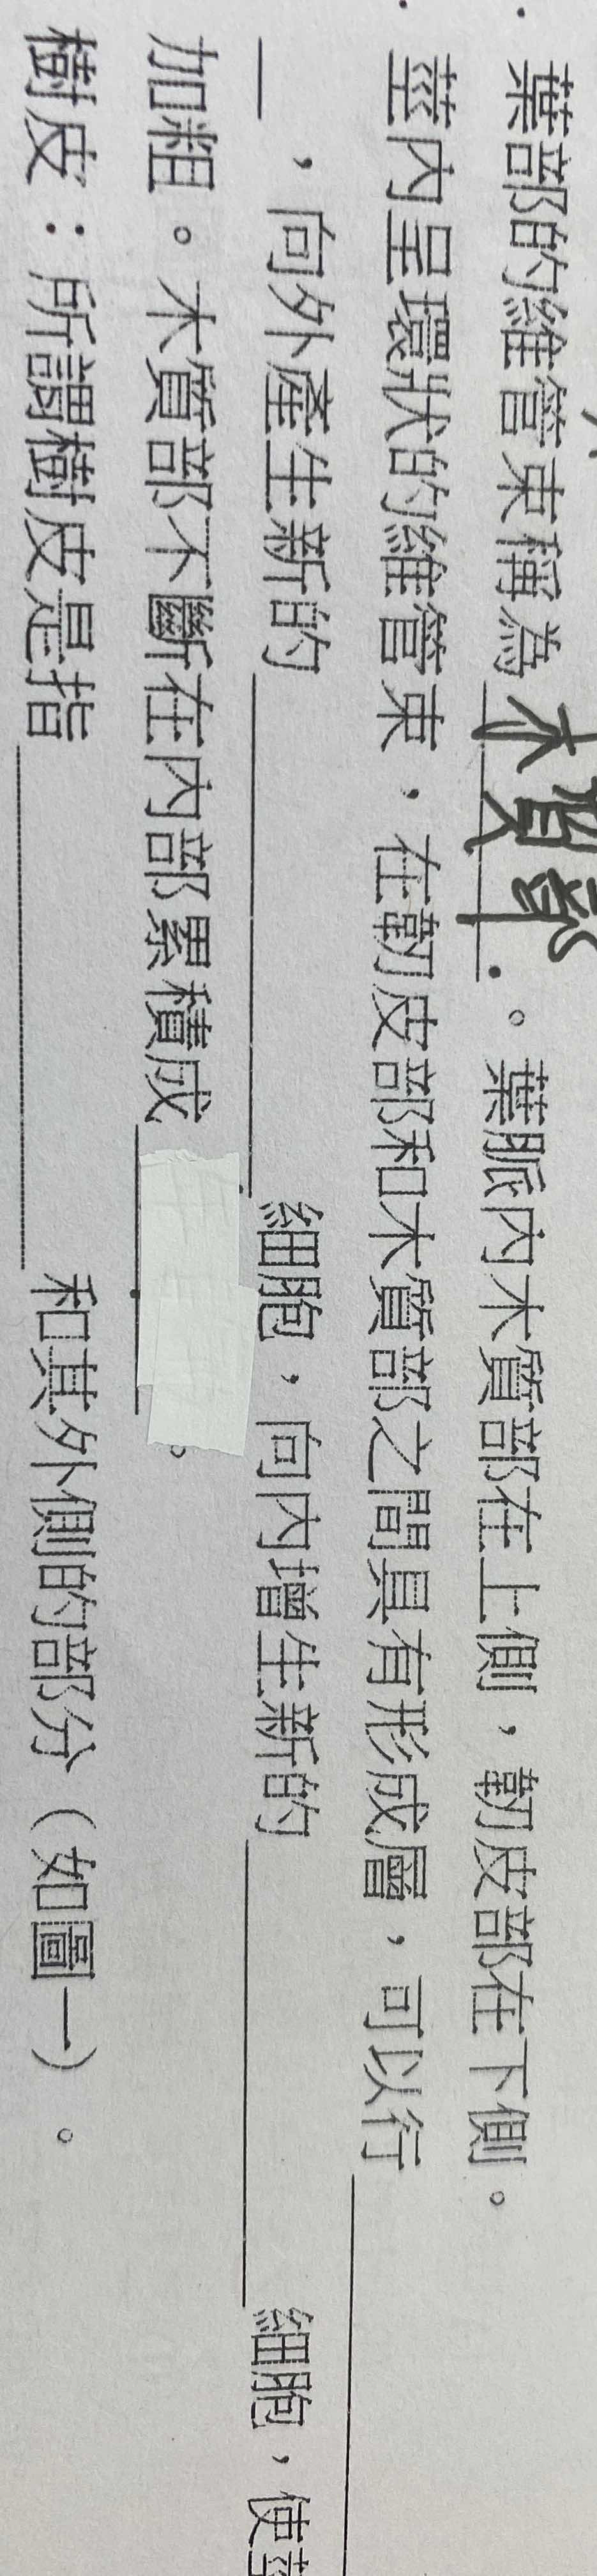 ．葉部的維管束稱為木質部。葉脈內木質部在上側，韌皮部在下側。
．莖內呈環狀的維管束，在韌皮部和木質部之間具有形成層，可以行
，向外產生新的 細胞，向內增生新的 細胞，使莖
加粗。木質部不斷在內部累積成 。
樹皮：所謂樹皮是指 和其外側的部分（如圖一）。